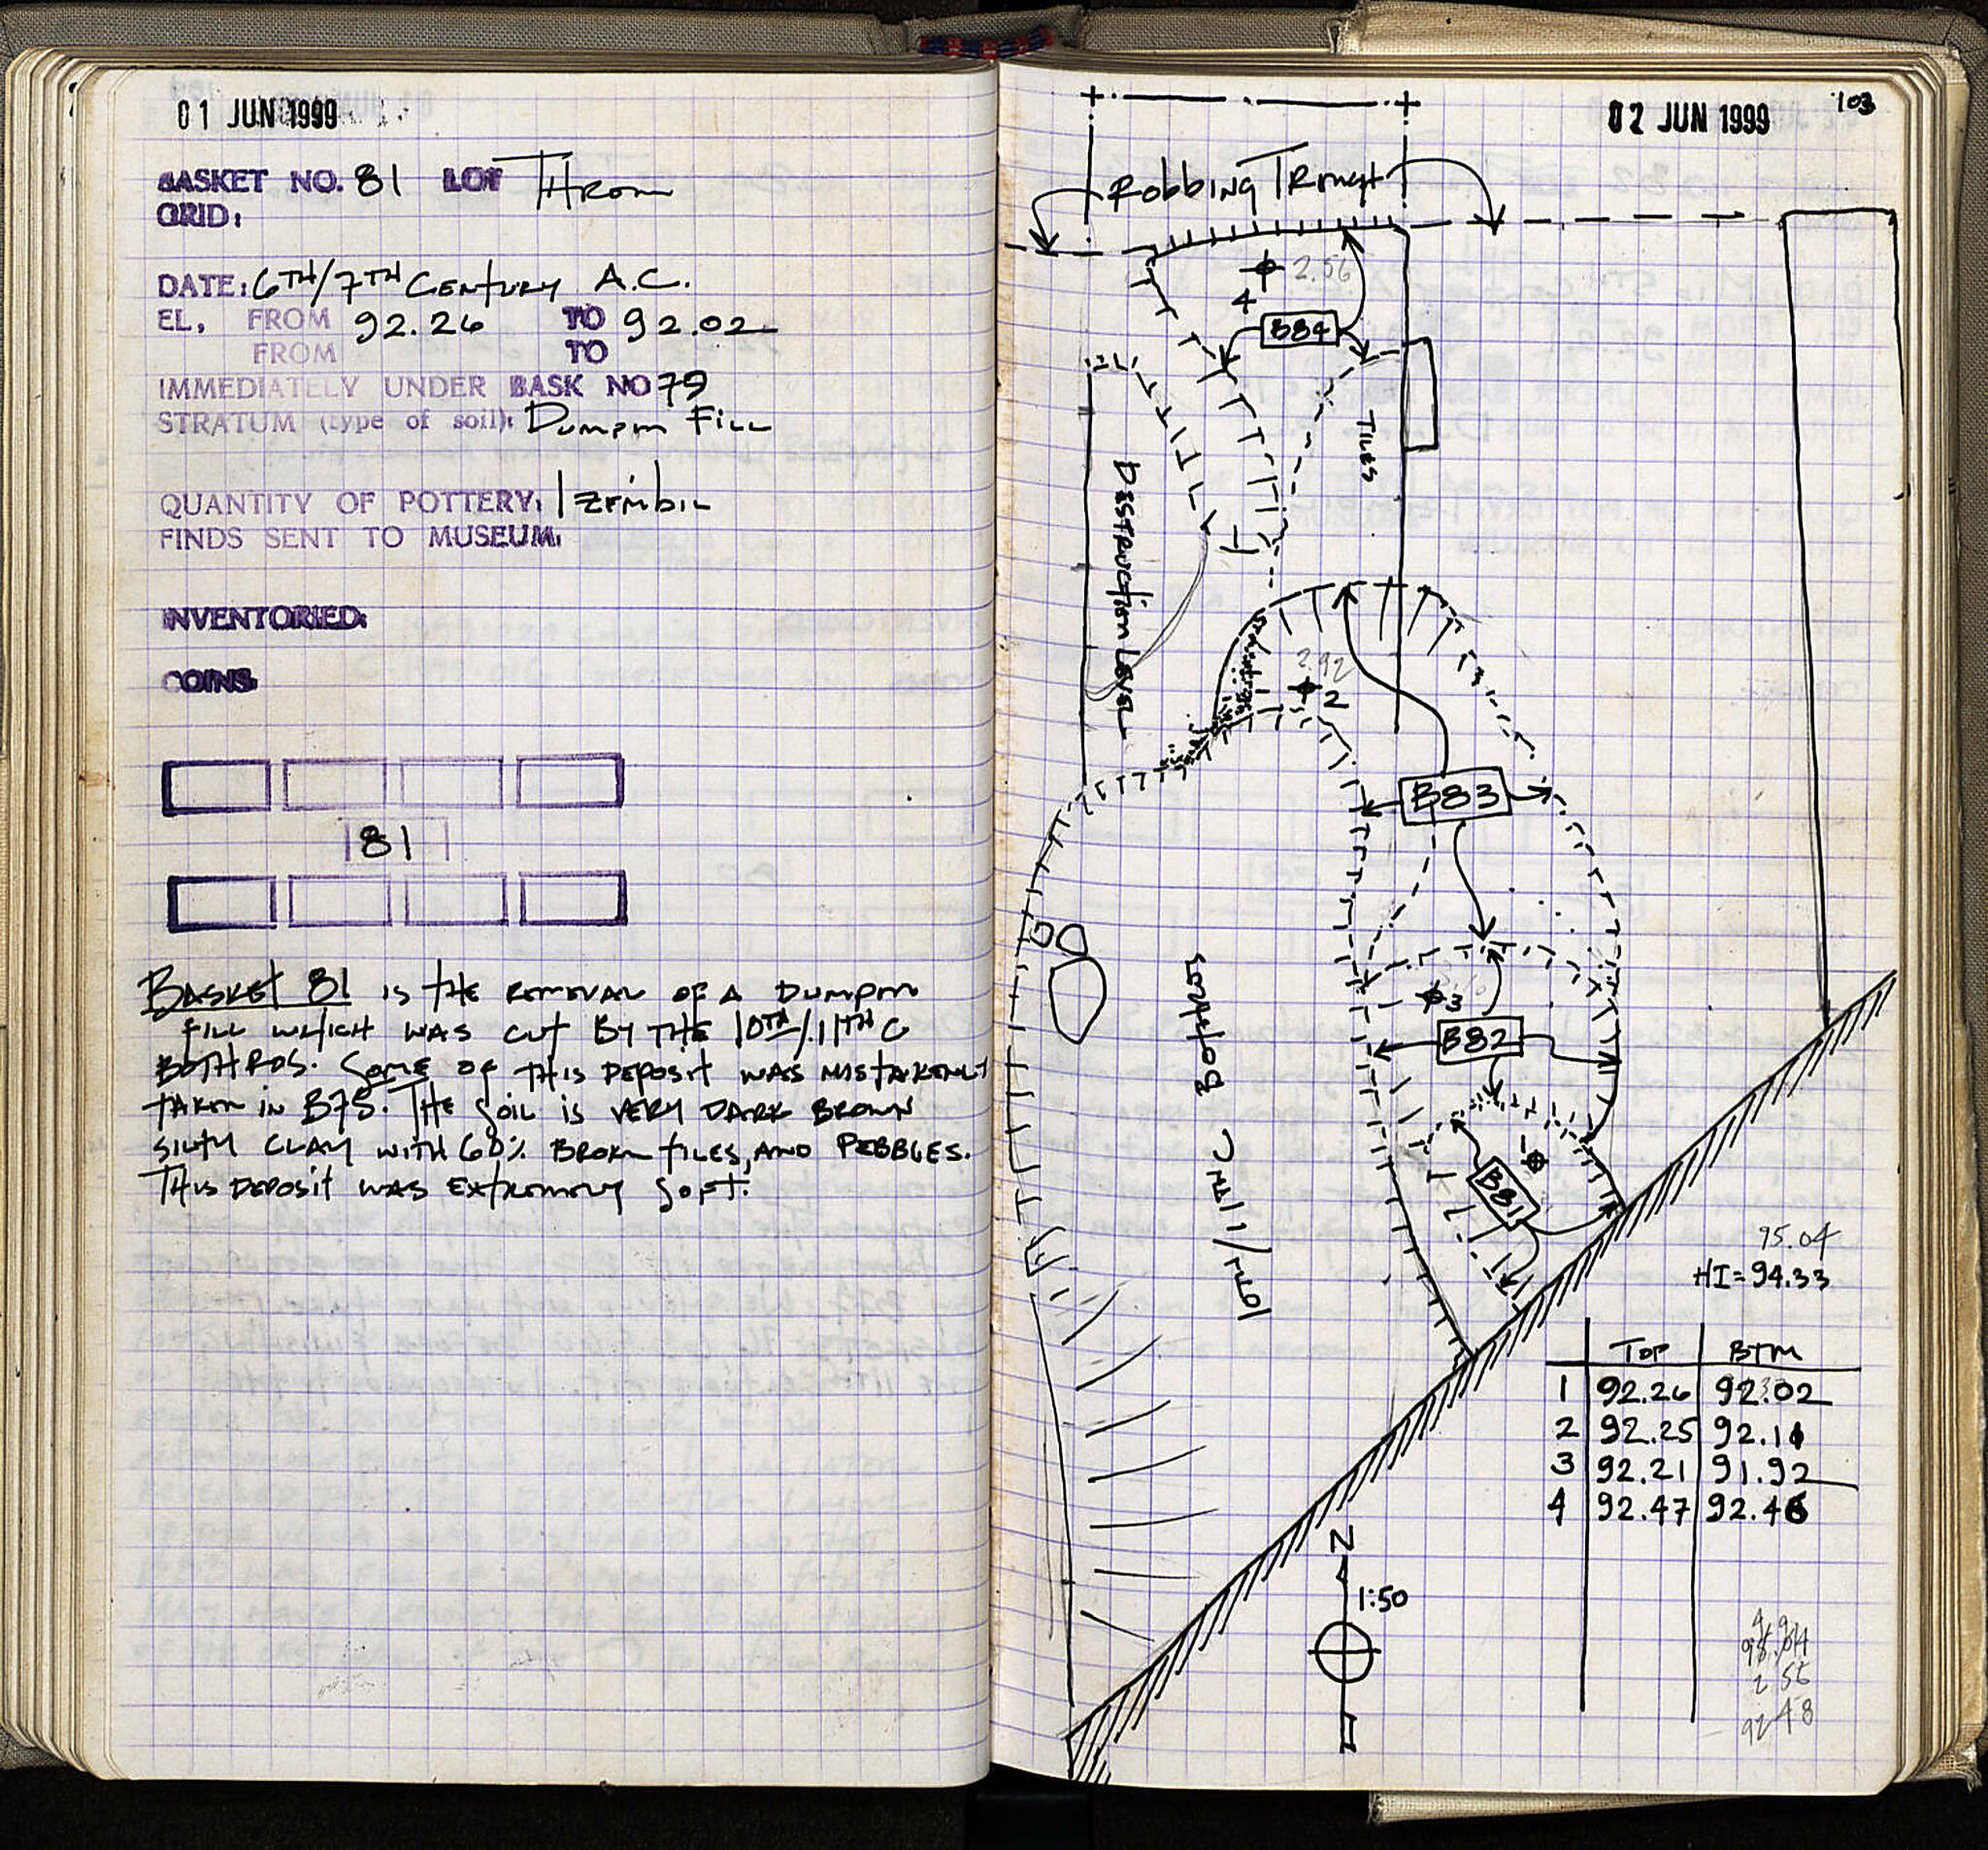 01 JUN 1999
BASKET NO. 81 LOT
GRID:
DATE: 6TH/7TH CENTURY A.C.
EL. FROM 92.26 TO 92.02
FROM TO
IMMEDIATELY UNDER BASK NO 79
STRATUM (type of soil): DUMPIN FILL
QUANTITY OF POTTERY: 1 ZEMBIL
FINDS SENT TO MUSEUM:
INVENTORIED:
COINS
81
BASKET 81 IS THE REMOVAL OF A DUMPIN
FILL WHICH WAS CUT BY THE 10TH/11TH C
BOTHROS. SOME OF THIS DEPOSIT WAS MISTAKENLY
TAKEN IN B78. THE SOIL IS VERY DARK BROWN
SILTY CLAY WITH 60% BROKEN TILES, AND PEBBLES.
THIS DEPOSIT WAS EXTREMELY SOFT.
02 JUN 1999
103
ROBBING TRENCH
2.56
4
B84
TILES
DESTRUCTION LEVEL
2.92
2
B83
3
B82
1
B81
10TH/11TH C BOTHROS
95.04
HI=94.33
TOP BTM
1 92.26 92.02
2 92.25 92.11
3 92.21 91.92
4 92.47 92.46
N
1:50
95.04
2 56
92 48